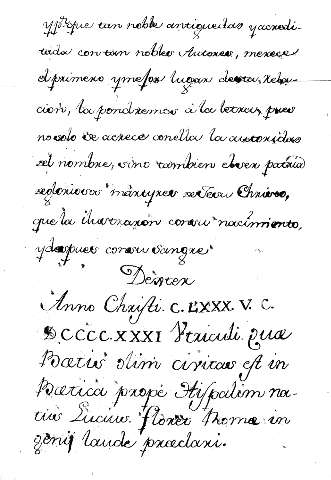 y pᵒʳ que tan noble antiguedad, y acredi-
tada con tan nobles Autores, merece
el primero y mejor lugar desta, Rela-
cion, la pondremos à la letra, pues
no solo se acrece con ella la autoridad
del nombre, sino tambien el ser patria
de gloriosos martyres de Jesu Christo,
que la ilustraron con su nacimiento,
y despues con su sangre
Dexter
Anno Christi. C. LXXX. V. C.
D.CCCC.XXXI Vtriculi. quæ
Bætis olim civitas est in
Bætica propè Hispalim na-
tus Lucius. floret Romæ in
genij laude præclari.